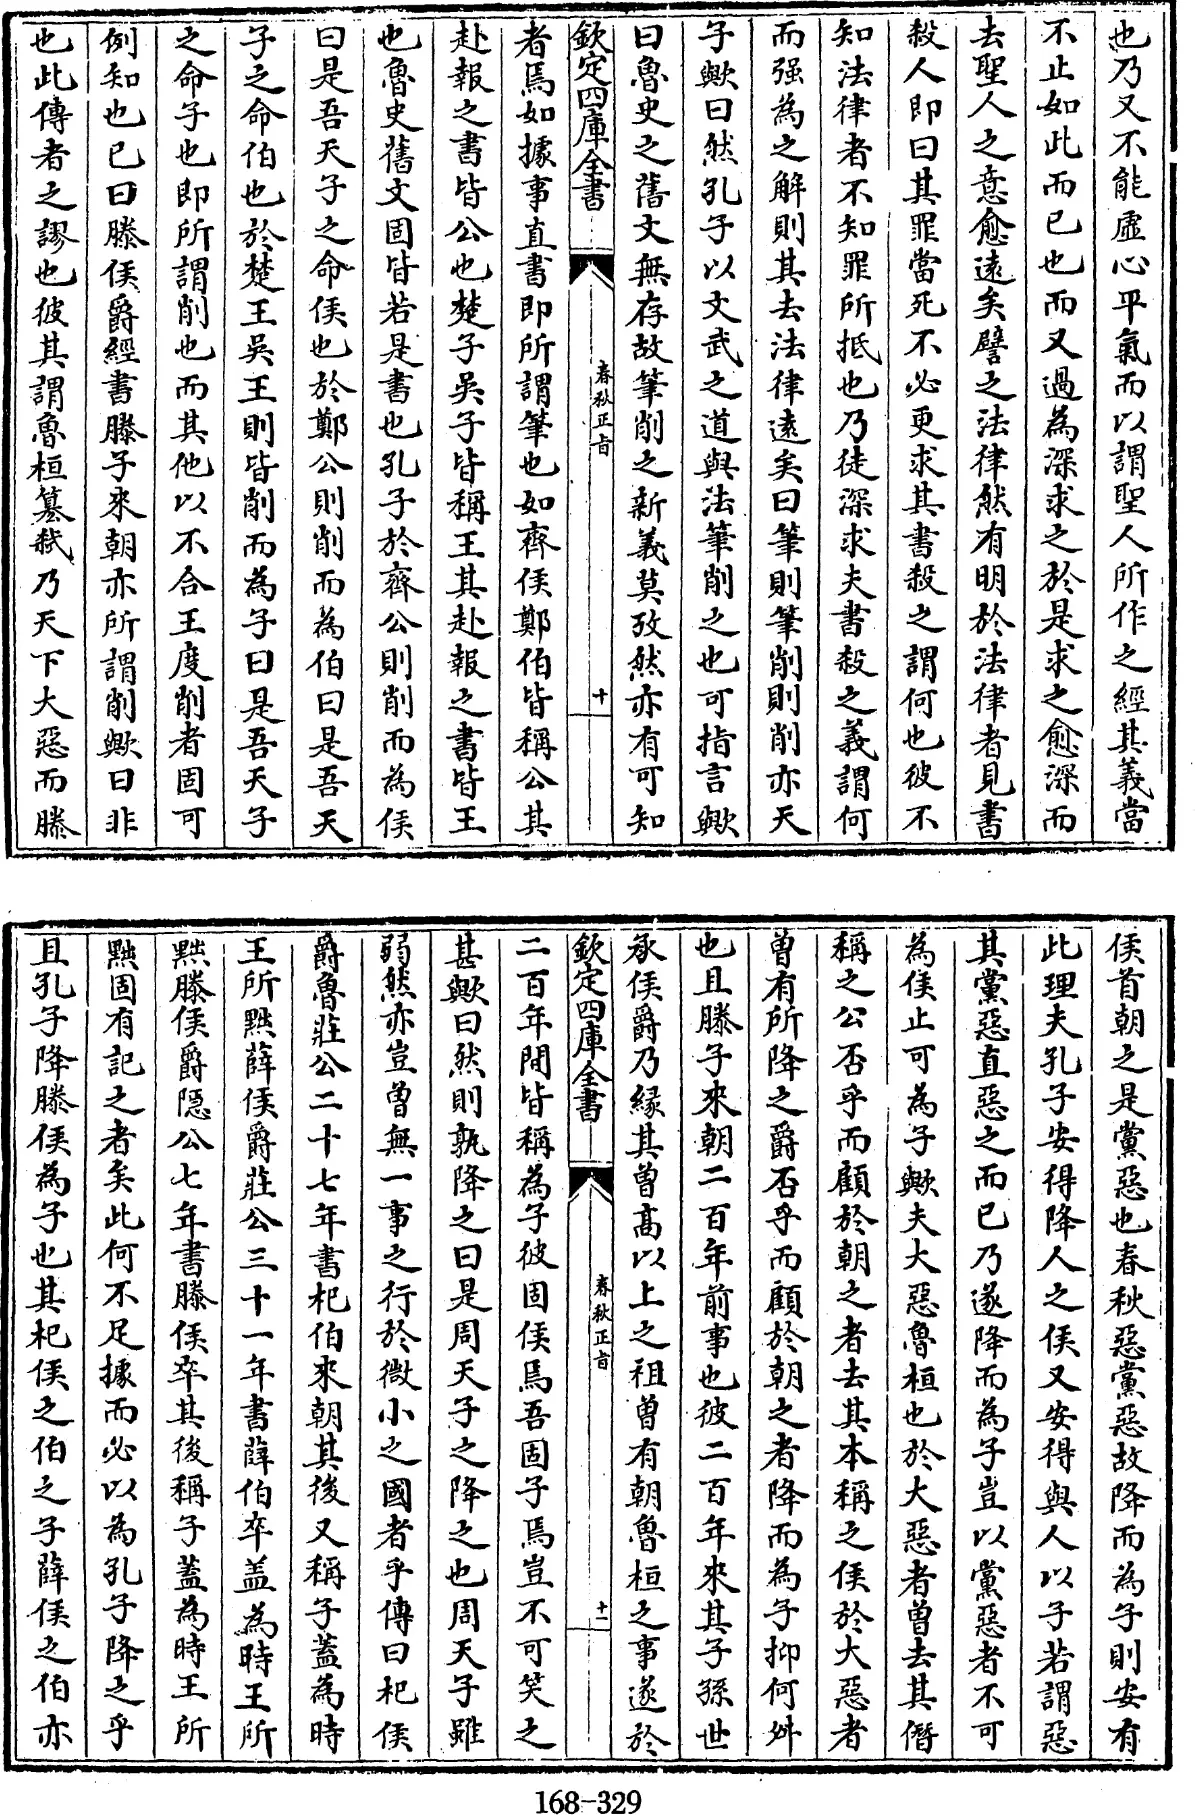 也乃又不能虛心平氣而以謂聖人所作之經其義當
不止如此而已也而又過為深求之於是求之愈深而
去聖人之意愈遠矣譬之法律然有明於法律者見書
殺人即曰其罪當死不必更求其書殺之謂何也彼不
知法律者不知罪所抵也乃徒深求夫書殺之義謂何
而强為之解則其去法律遠矣曰筆則筆削則削亦天
子歟曰然孔子以文武之道與法筆削之也可指言歟
曰魯史之舊文無存故筆削之新義莫攷然亦有可知
欽定四庫全書
春秋正旨
十
者焉如據事直書即所謂筆也如齊侯鄭伯皆稱公其
赴報之書皆公也楚子吳子皆稱王其赴報之書皆王
也魯史舊文固皆若是書也孔子於齊公則削而為侯
曰是吾天子之命侯也於鄭公則削而為伯曰是吾天
子之命伯也於楚王吳王則皆削而為子曰是吾天子
之命子也即所謂削也而其他以不合王度削者固可
例知也已曰滕侯爵經書滕子來朝亦所謂削歟曰非
也此傳者之謬也彼其謂魯桓簒弒乃天下大惡而滕
侯首朝之是黨惡也春秋惡黨惡故降而為子則安有
此理夫孔子安得降人之侯又安得與人以子若謂惡
其黨惡直惡之而已乃遂降而為子豈以黨惡者不可
為侯止可為子歟夫大惡魯桓也於大惡者曾去其僭
稱之公否乎而顧於朝之者去其本稱之侯於大惡者
曾有所降之爵否乎而顧於朝之者降而為子抑何舛
也且滕子來朝二百年前事也彼二百年來其子孫世
承侯爵乃緣其曾髙以上之祖曾有朝魯桓之事遂於
欽定四庫全書
春秋正旨
十一
二百年間皆稱為子彼固侯焉吾固子焉豈不可笑之
甚歟曰然則孰降之曰是周天子之降之也周天子雖
弱然亦豈曾無一事之行於微小之國者乎傳曰杞侯
爵魯莊公二十七年書杞伯來朝其後又稱子蓋為時
王所黜薛侯爵莊公三十一年書薛伯卒盖為時王所
黜滕侯爵隱公七年書滕侯卒其後稱子蓋為時王所
黜固有記之者矣此何不足據而必以為孔子降之乎
且孔子降滕侯為子也其杞侯之伯之子薛侯之伯亦
168-329